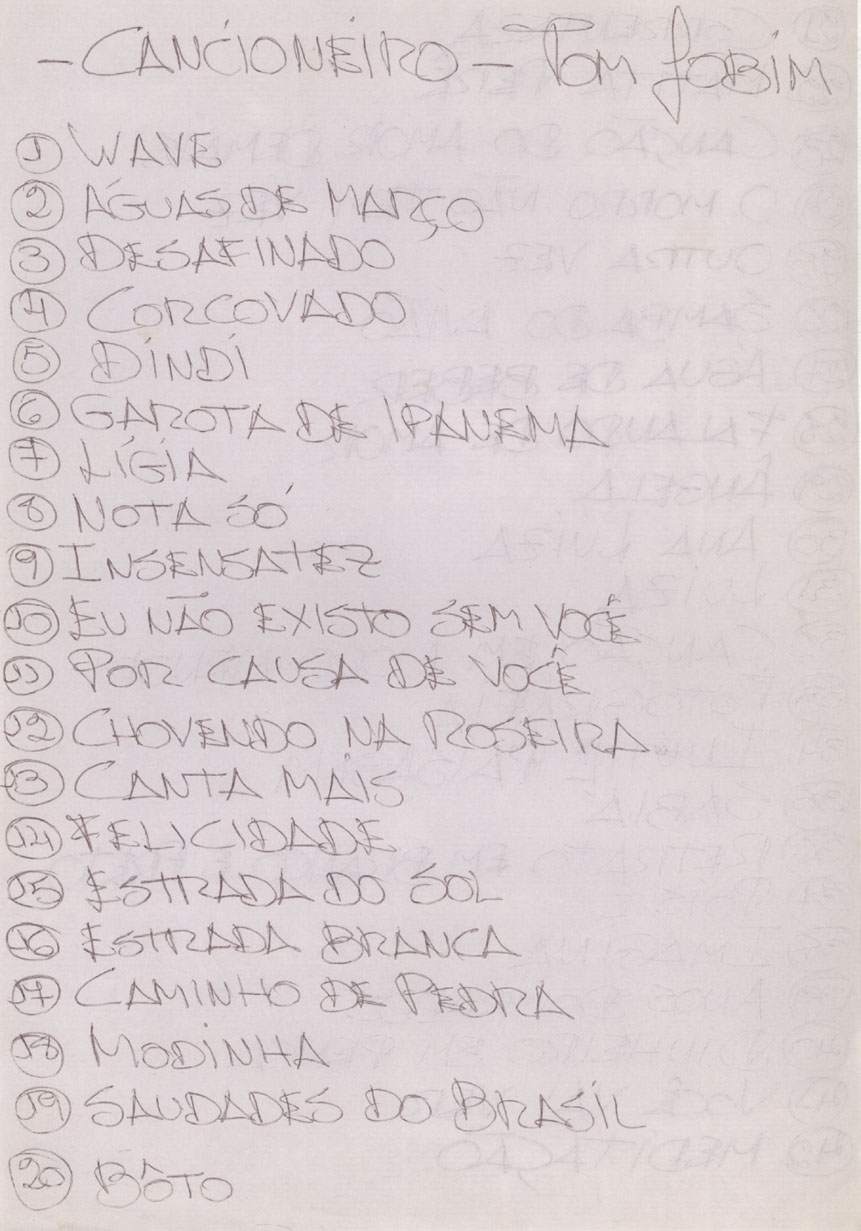 - CANCIONEIRO - TOM JOBIM
1 WAVE
2 ÁGUAS DE MARÇO
3 DESAFINADO
4 CORCOVADO
5 DINDI
6 GAROTA DE IPANEMA
7 LÍGIA
8 NOTA SÓ
9 INSENSATEZ
10 EU NÃO EXISTO SEM VOCÊ
11 POR CAUSA DE VOCÊ
12 CHOVENDO NA ROSEIRA
13 CANTA MAIS
14 FELICIDADE
15 ESTRADA DO SOL
16 ESTRADA BRANCA
17 CAMINHO DE PEDRA
18 MODINHA
19 SAUDADES DO BRASIL
20 BÔTO